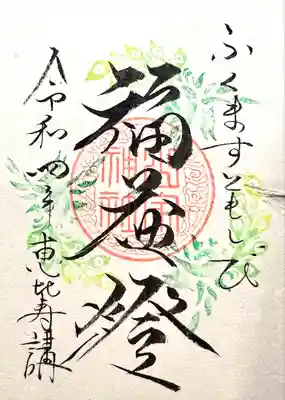 ふくますともしび
福益燈
神社
令和四年恵比寿講